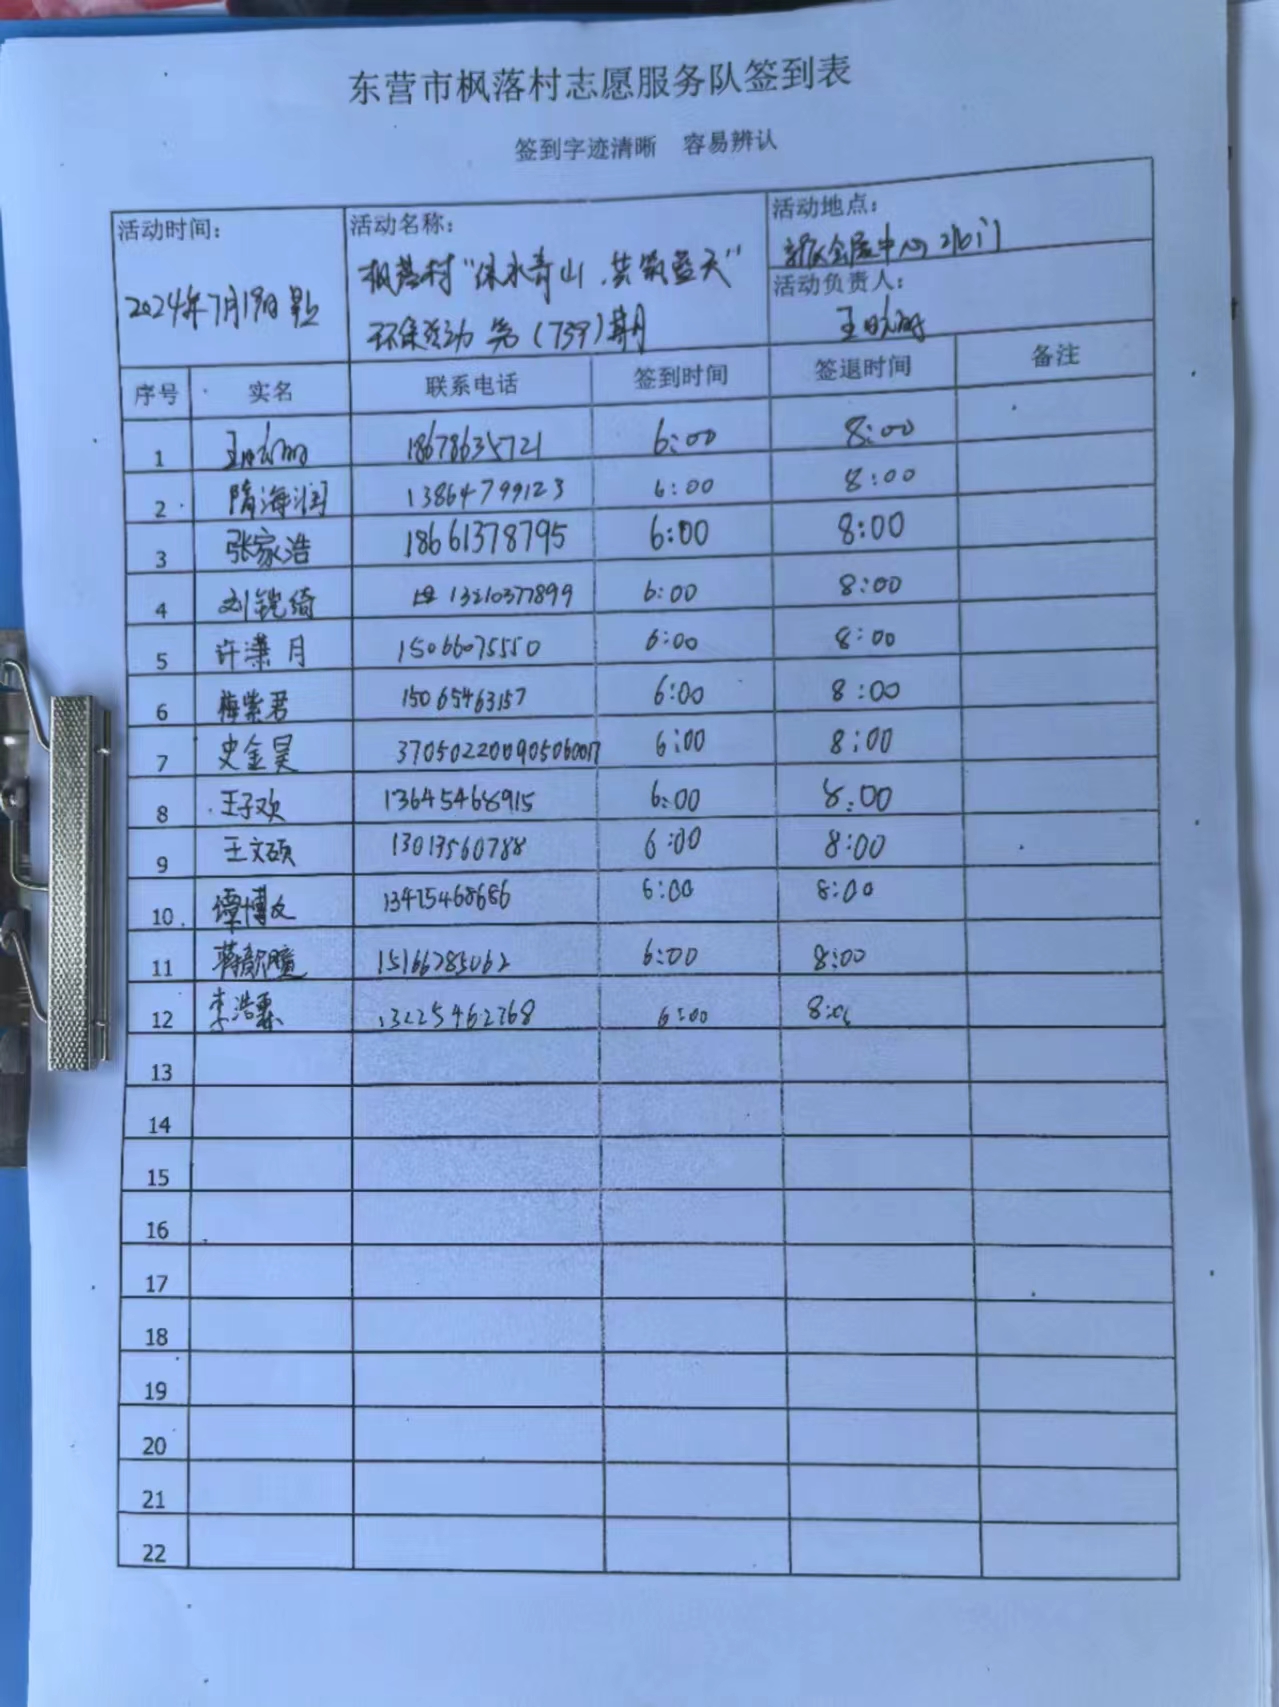 东营市枫落村志愿服务队签到表
签到字迹清晰 容易辨认
活动时间: 活动名称: 活动地点:
2024年7月19日 枫落村"保水青山,共筑蓝天" 会展中心北门
环保活动 第(759)期 活动负责人:
序号 实名 联系电话 签到时间 签退时间 备注
1 18678635721 6:00 8:00
2 隋海润 13864799123 6:00 8:00
3 张家浩 18661378795 6:00 8:00
4 刘铠绮 13210377899 6:00 8:00
5 许潇月 15066075550 6:00 8:00
6 梅紫君 15065463157 6:00 8:00
7 史金昊 370502200905060017 6:00 8:00
8 王子欢 13645468915 6:00 8:00
9 王文硕 13013560788 6:00 8:00
10 谭博文 13475468686 6:00 8:00
11 15166785062 6:00 8:00
12 李浩霖 13225462768 6:00 8:00
13
14
15
16
17
18
19
20
21
22